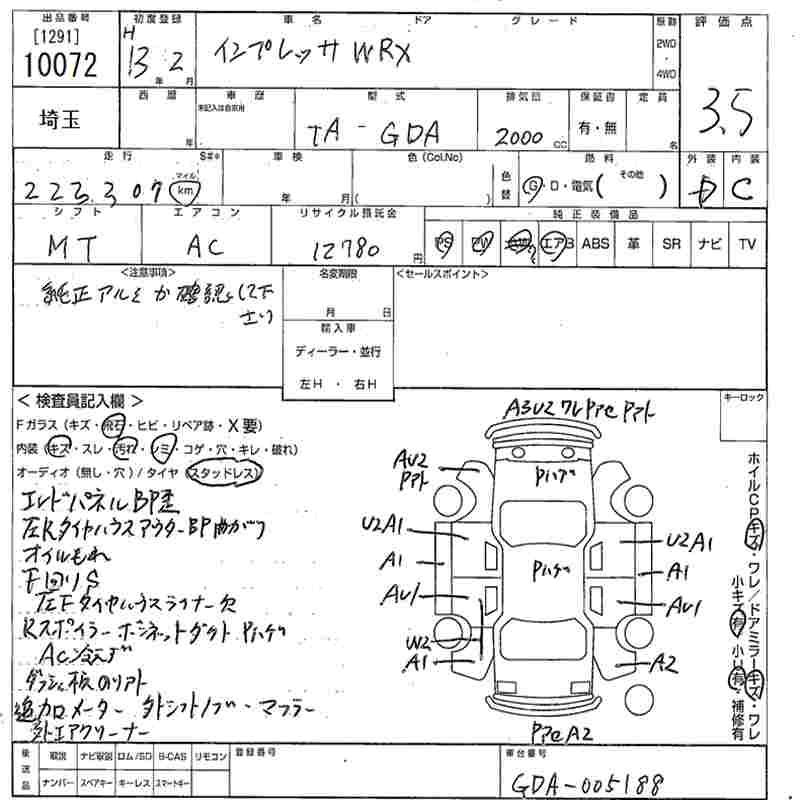 出品番号 初度登録 車名 ドア グレード 駆動 評価点
[1291]
10072
H 13年 2月
インプレッサ WRX
2WD・4WD
3.5
西暦 車歴 型式 排気量 保証書 定員
未記入は自家用
埼玉
年
TA-GDA
2000 CC
有・無
名
走行 S#* 車検 色(Col.No) 燃料 外装 内装
マイル
223,307 km
年 月 ( )
色替
G・D・電気( その他 )
D C
シフト エアコン リサイクル預託金 純正装備品
MT AC 12780 円
PS PW AW エアB ABS 革 SR ナビ TV
<注意事項> 名変期限 <セールスポイント>
純正アルミか確認して下さい
月 日
輸入車
ディーラー・並行
左H ・ 右H
キーロック
<検査員記入欄>
Fガラス(キズ・飛石・ヒビ・リペア跡・X要)
内装(キズ・スレ・汚れ・シミ・コゲ・穴・キレ・破れ)
オーディオ(無し・穴)/タイヤ(スタッドレス)
エンドパネルBP歪
左Rタイヤハウスアウター BP曲がり
オイルもれ
F回りS
左Fタイヤハウスライナー欠
Rスポイラーボンネットダクト Pハゲ
AC冷えず
追加ロメーター 社外シフトノブ・マフラー
社外エアクリーナー
A3U2ワレ
AU2
Pハゲ
U2A1
A1
AU1
W2
A1
Pハゲ
U2A1
A1
AU1
A2
ホイルCPキズ・ワレ/ドアミラーキズ・ワレ
小キズ有 小U有・補修有
後送品 取説 ナビ取説 ロム/SD B-CAS リモコン 登録番号 車台番号
ナンバー スペアキー キーレス スマートキー
GDA-005188